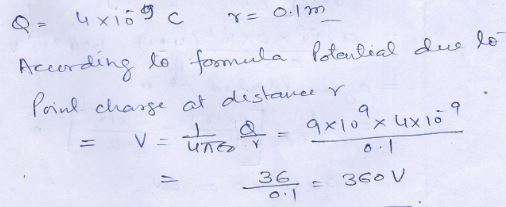 Q = 4×10⁻⁹ C r = 0.1m
According to formula Potential due to
Point charge at distance r
= V = 1/4πε₀ Q/r = 9×10⁹ × 4×10⁻⁹ / 0.1
= 36/0.1 = 360 V